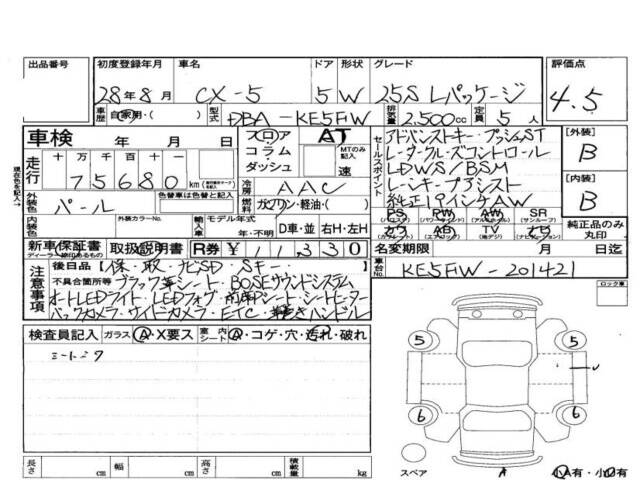 出品番号
初度登録年月 車名 ドア 形状 グレード 評価点
28年8月 CX-5 5 W 25S Lパッケージ 4.5
車歴 自家用・( ) 型式 DBA-KE5FW 排気量 2,500cc 定員 5人
車検 年 月 日
フロア コラム ダッシュ
AT
MTのみ記入 速
セールスポイント
アドバンストキー・プッシュST
レーダークルーズコントロール
LDWS/BSM
レーンキープアシスト
純正19インチAW
[外装]
B
[内装]
B
純正品のみ丸印
走行 十万 万 千 百 十 一
75680 km
冷房 AAC
燃料 ガソリン・軽油・( )
外装色 パール 色替車は色替と記入
内装色 外装カラーNo.
輸入車 モデル年式 年・不明 D車・並 右H・左H
PS PW AW SR
(パワーウィンドウ) (アルミホイール) (サンルーフ)
AB TV ナビ
(エアバッグ)
新車保証書 取扱説明書 R券 ¥11,330
ディーラー印のあるもの
名変期限 月 日迄
車台No. KE5FW-201421
注意事項
後日品【保・取・ナビSD・Sキー・ 】
不具合箇所等 ブラック革シート・BOSEサウンドシステム
オートLEDライト・LEDフォグ・前席Pシート・シートヒーター
バックカメラ・サイドカメラ・ETC・革巻きハンドル
ロック車
検査員記入 ガラス A・X要ス 室内 A・コゲ・穴・汚れ・破れ
5 5
6 6
スペア
A
小A有・小U有
長さ cm 幅 cm 高さ cm 積載量 kg